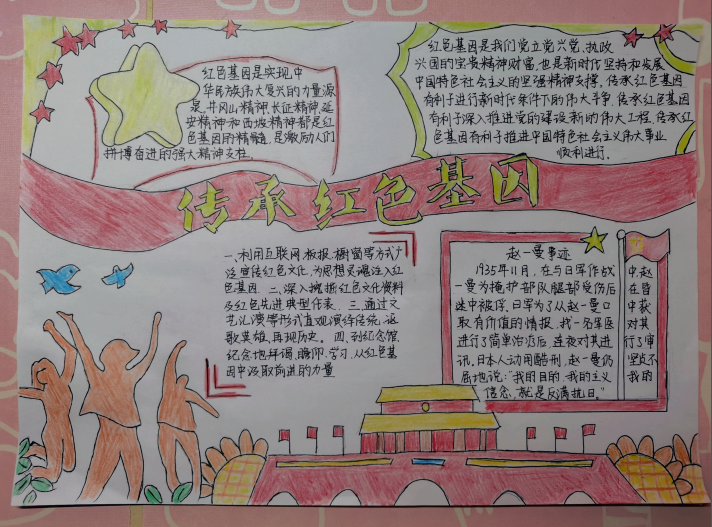 红色基因是实现中
华民族伟大复兴的力量源
是,井冈山精神、长征精神、延
安精神和西坡精神都是红
色基因的精髓,是激励人们
拼博奋进的强大精神支柱.
红色基因是我们党立党兴党、执政
兴国的宝贵精神财富,也是新时代坚持和发展
中国特色社会主义的坚强精神支撑,传承红色基因
有利于进行新时代条件下的伟大斗争,传承红色基因
有利于深入推进党的建设新的伟大工程,传承红
色基因有利于推进中国特色社会主义伟大事业
顺利进行.
传承红色基因
一、利用互联网、板报、橱窗等方式广
泛宣传红色文化,为思想灵魂注入红
色基因.二、深入挖掘红色文化资料
及红色先进典型代表.三、通过文
艺汇演等形式直观演绎传统,讴
歌英雄,再现历史.四、到纪念馆、
纪念地拜谒、瞻仰、学习,从红色基
因中汲取前进的力量
赵一曼事迹
1935年11月,在与日军作战中,赵
一曼为掩护部队腿部受伤后在昏
迷中被俘.日军为了从赵一曼口中获
取有价值的情报,找一名军医对其
进行了简单治疗后,连夜对其进行了审
讯,日本人动用酷刑,赵一曼仍坚贞不
屈地说:"我的目的,我的主义,我的
信念,就是反满抗日。"